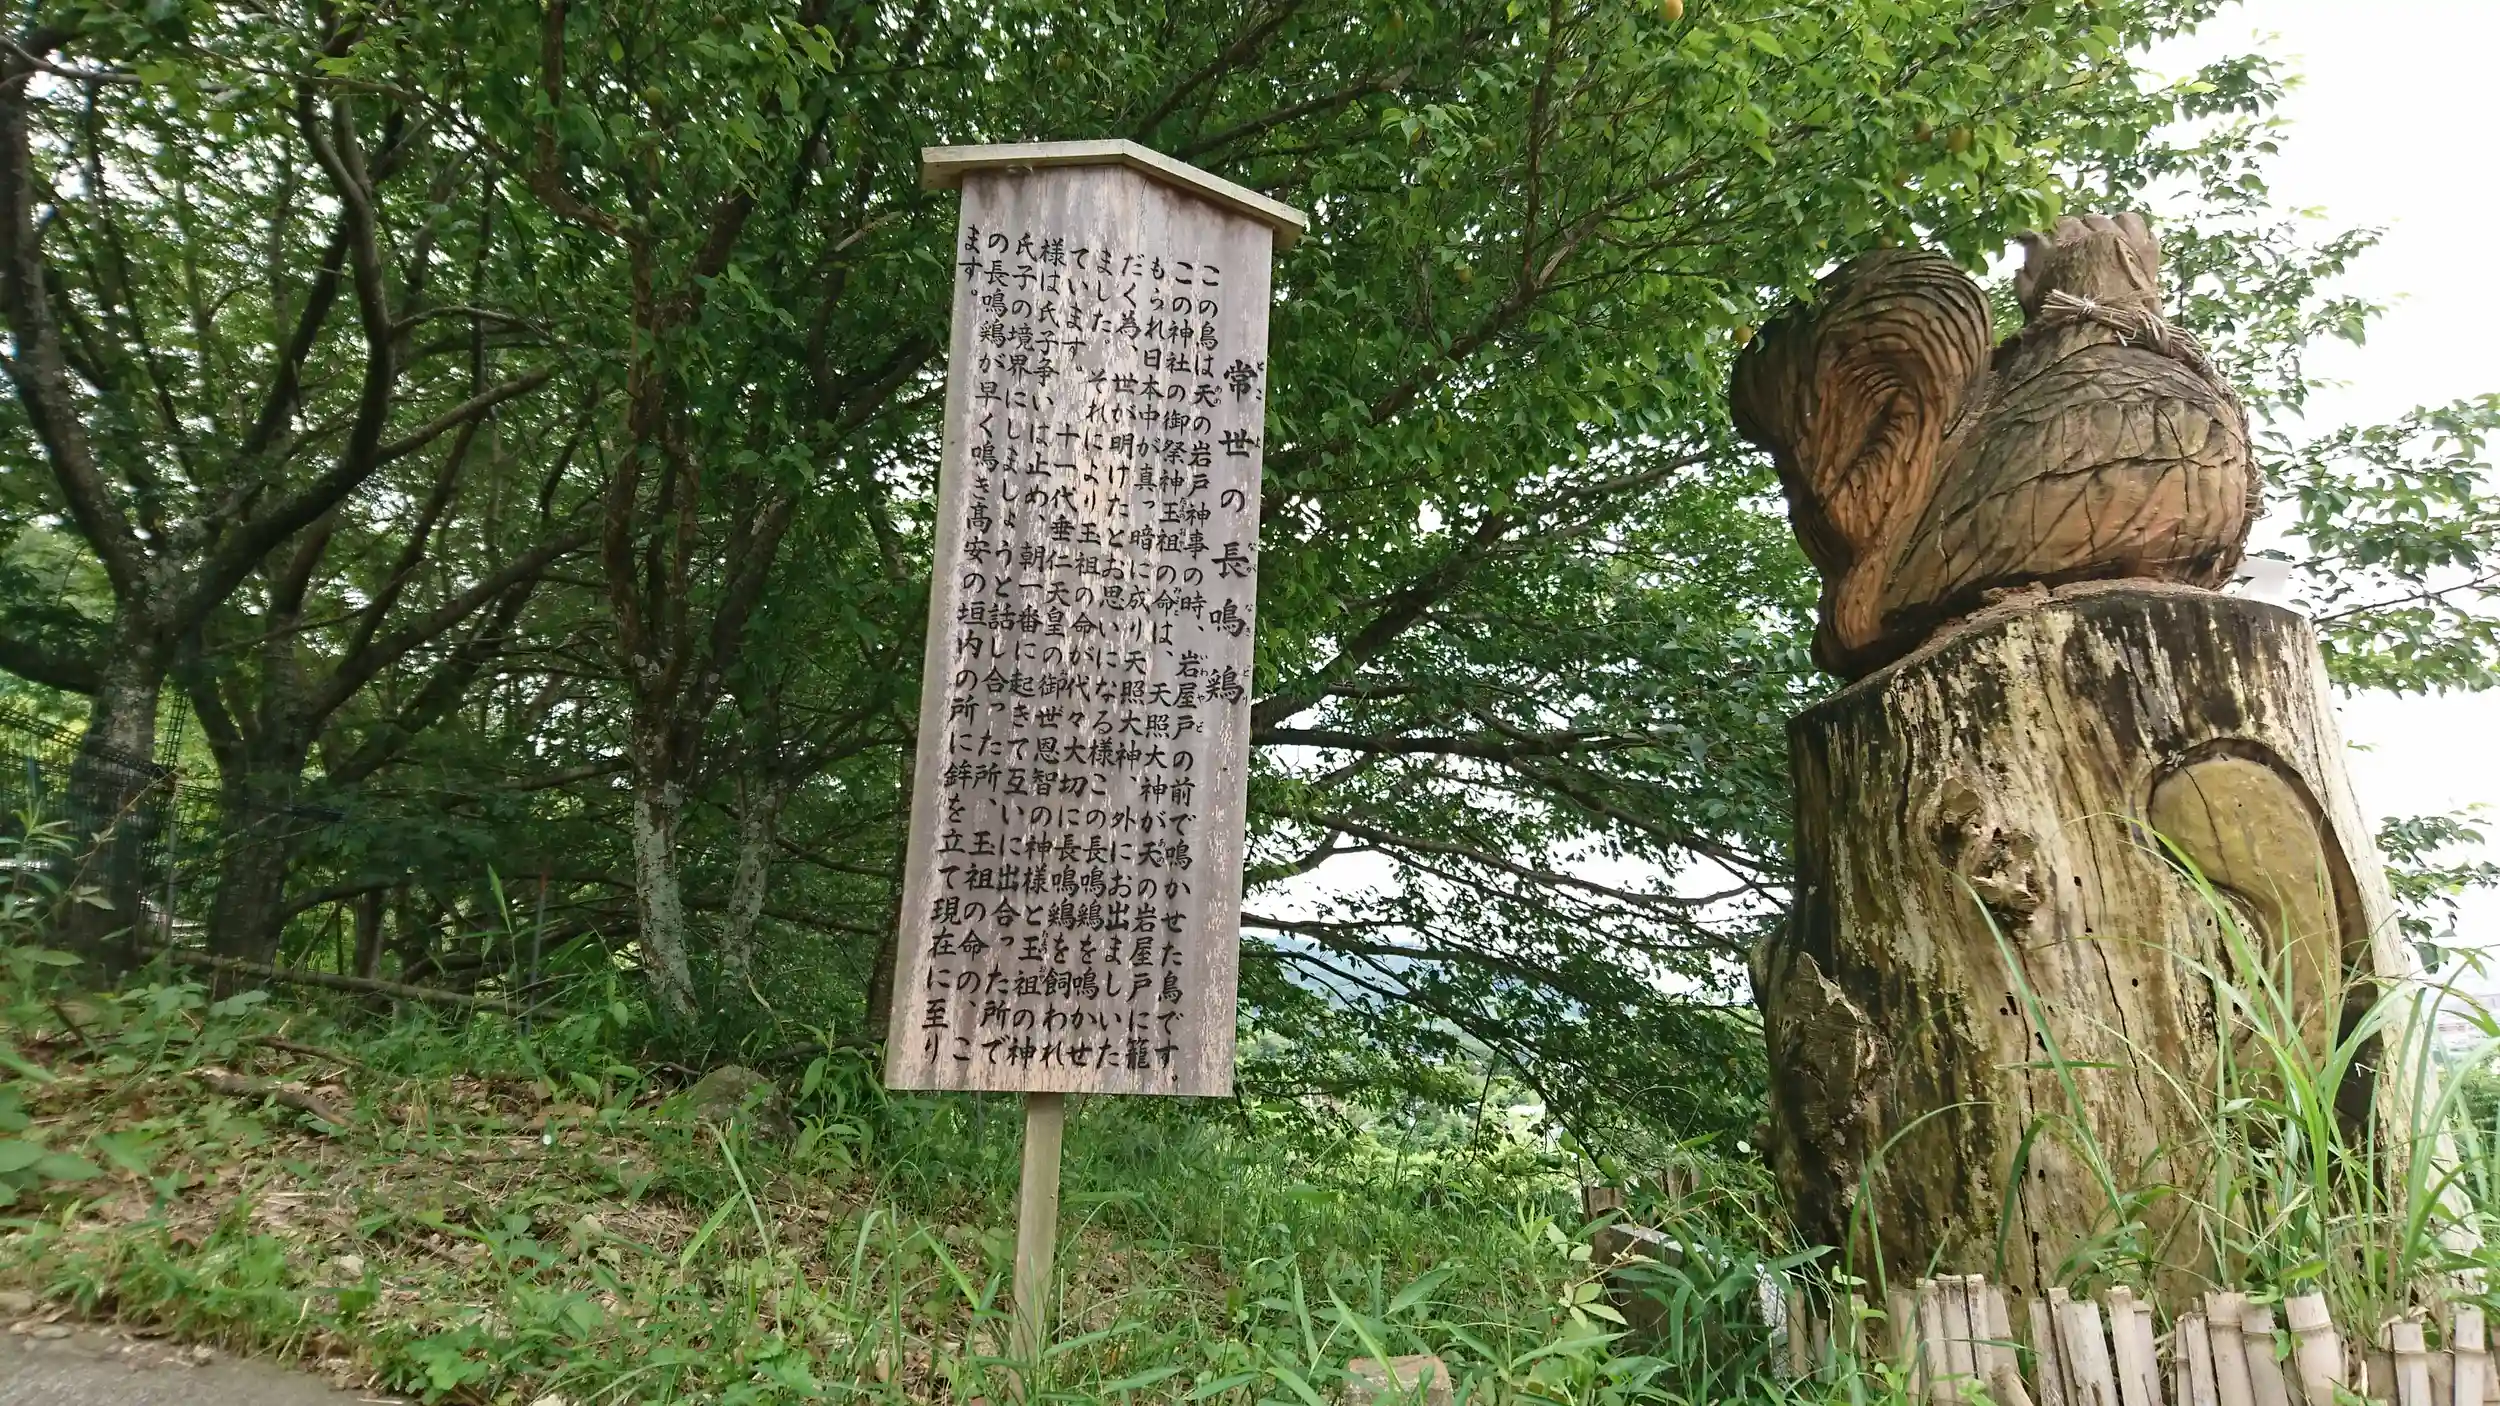 常世の長鳴鶏
この鳥は天の岩戸神事の時、岩屋戸の前で鳴かせた鳥です。
この神社の御祭神玉祖の命は、天照大神が天の岩屋戸に籠
もられ日本中が真っ暗に成り天照大神、外にお出ましいた
だく為、世が明けたとお思いになる様この長鳴鶏を鳴かせ
ました。それにより玉祖の命が代々大切に長鳴鶏を飼われ
ています。十一代垂仁天皇の御世恩智の神様と玉祖の神
様は氏子争いは止め、朝一番に起きて互いに出合った所で
氏子の境界にしましょうと話し合った所、玉祖の命の、こ
の長鳴鶏が早く鳴き高安の垣内の所に鉾を立て現在に至り
ます。